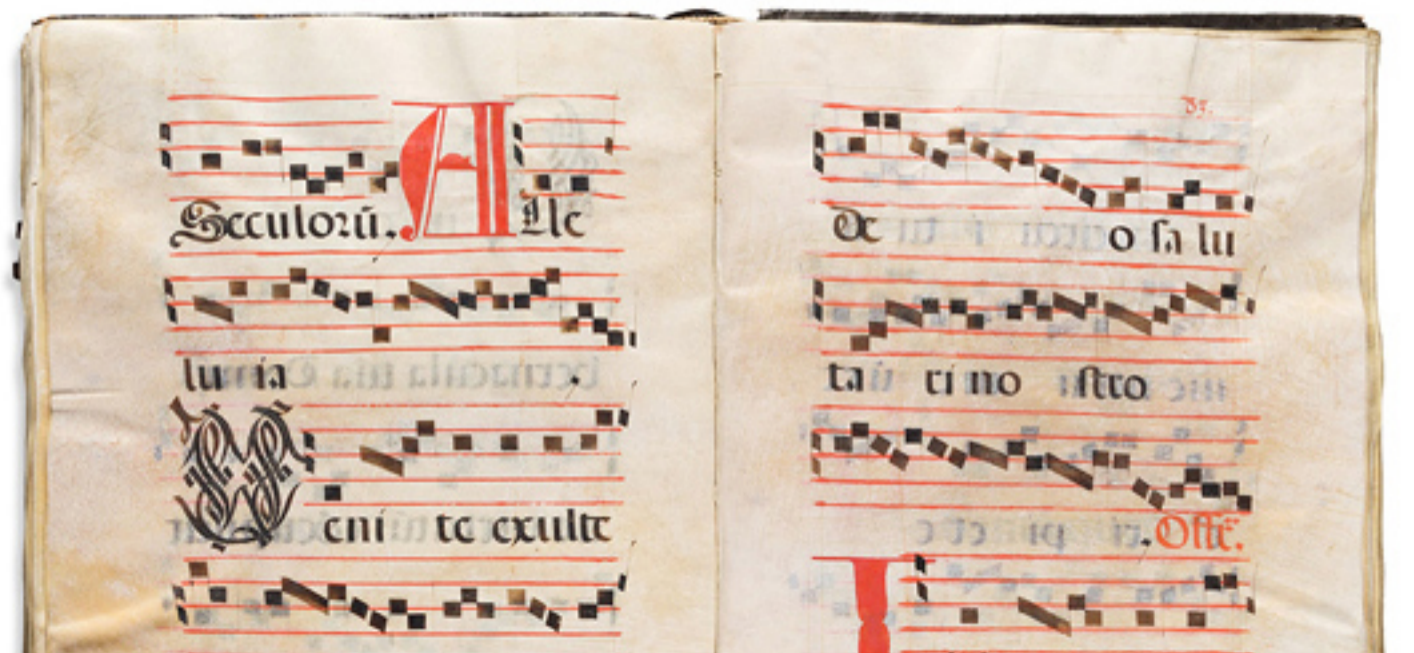 Seculorũ. Alle
lu ia
Veni te exulte
85.
de o sa lu
ta ri no stro
. Offe.